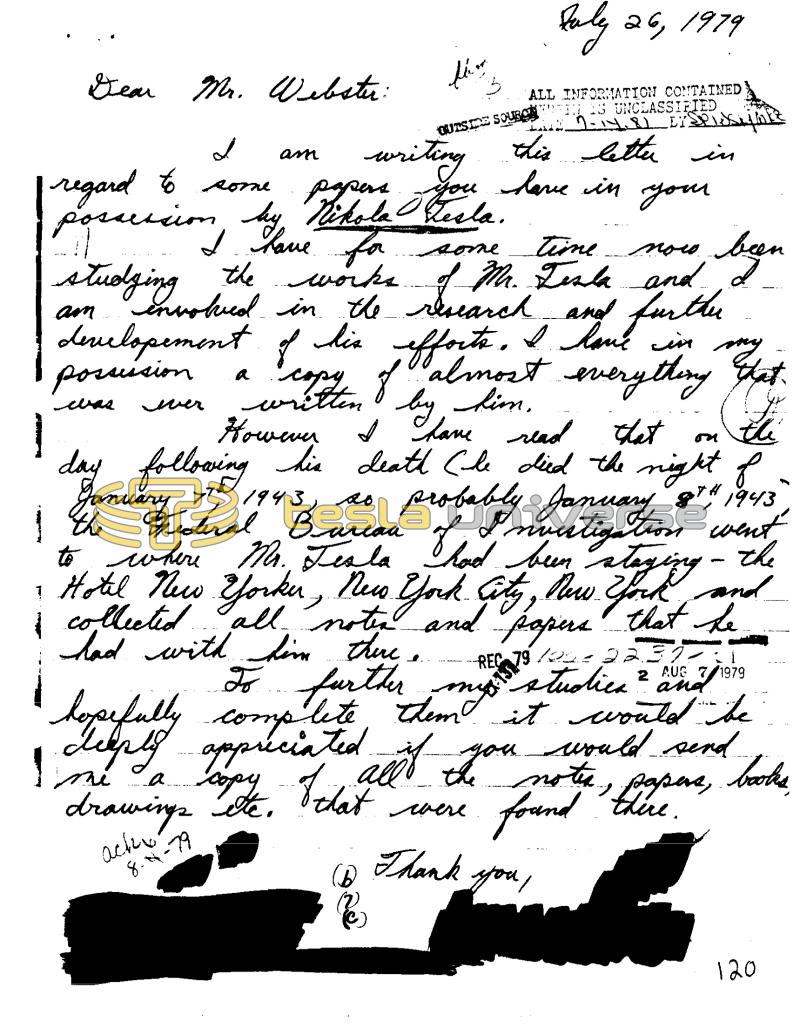 July 26, 1979
Dear Mr. Webster:
ALL INFORMATION CONTAINED
HEREIN IS UNCLASSIFIED
DATE 7-14-81 BY
OUTSIDE SOURCE
I am writing this letter in
regard to some papers you have in your
possession by Nikola Tesla.
I have for some time now been
studying the works of Mr. Tesla and I
am envolved in the research and further
developement of his efforts. I have in my
possession a copy of almost everything that
was ever written by him.
However I have read that on the
day following his death (he died the night of
January 7TH 1943, so probably January 8TH, 1943,
the Federal Bureau of Investigation went
tesla universe
to where Mr. Tesla had been staying - the
Hotel New Yorker, New York City, New York and
collected all notes and papers that he
had with him there.
REC 79
2 AUG 7 1979
To further my studies and
hopefully complete them it would be
deeply appreciated if you would send
me a copy of all the notes, papers, books,
drawings etc. that were found there.
Thank you,
(b)
(7)
(c)
120